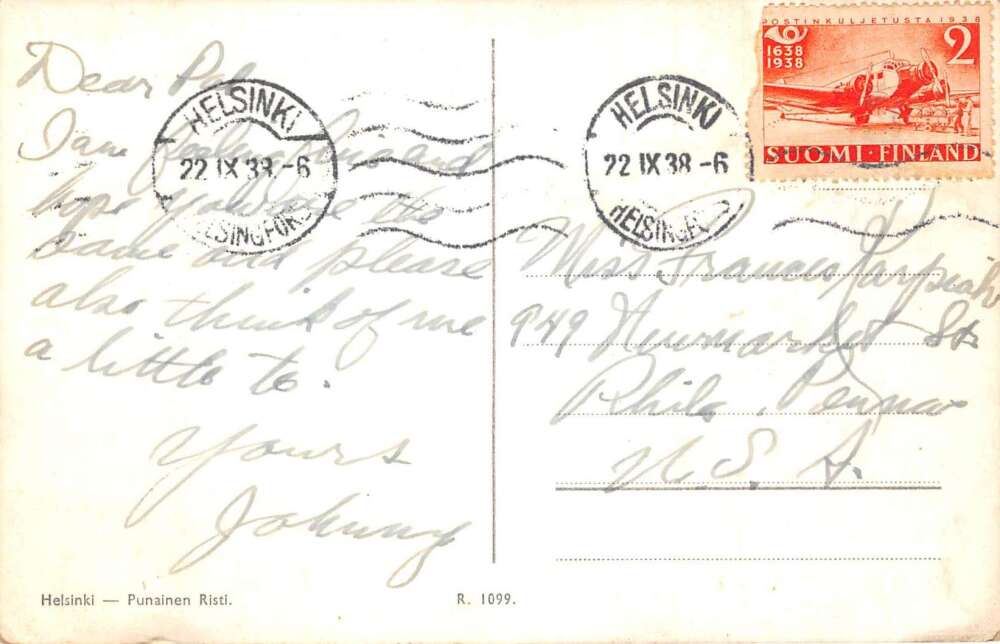 Dear Pal
I am feeling fine and
hope you are the
same and please
also think of me
a little to.
Yours
Johnny
Helsinki — Punainen Risti.
R. 1099.
HELSINKI
22 IX 38 -6
HELSINGFORS
HELSINKI
22 IX 38 -6
HELSINGFORS
POSTINKULJETUSTA 1938
1638
1938
2
SUOMI·FINLAND
Miss Frances
949 Newmarket St.
Phila. Penna
U.S.A.